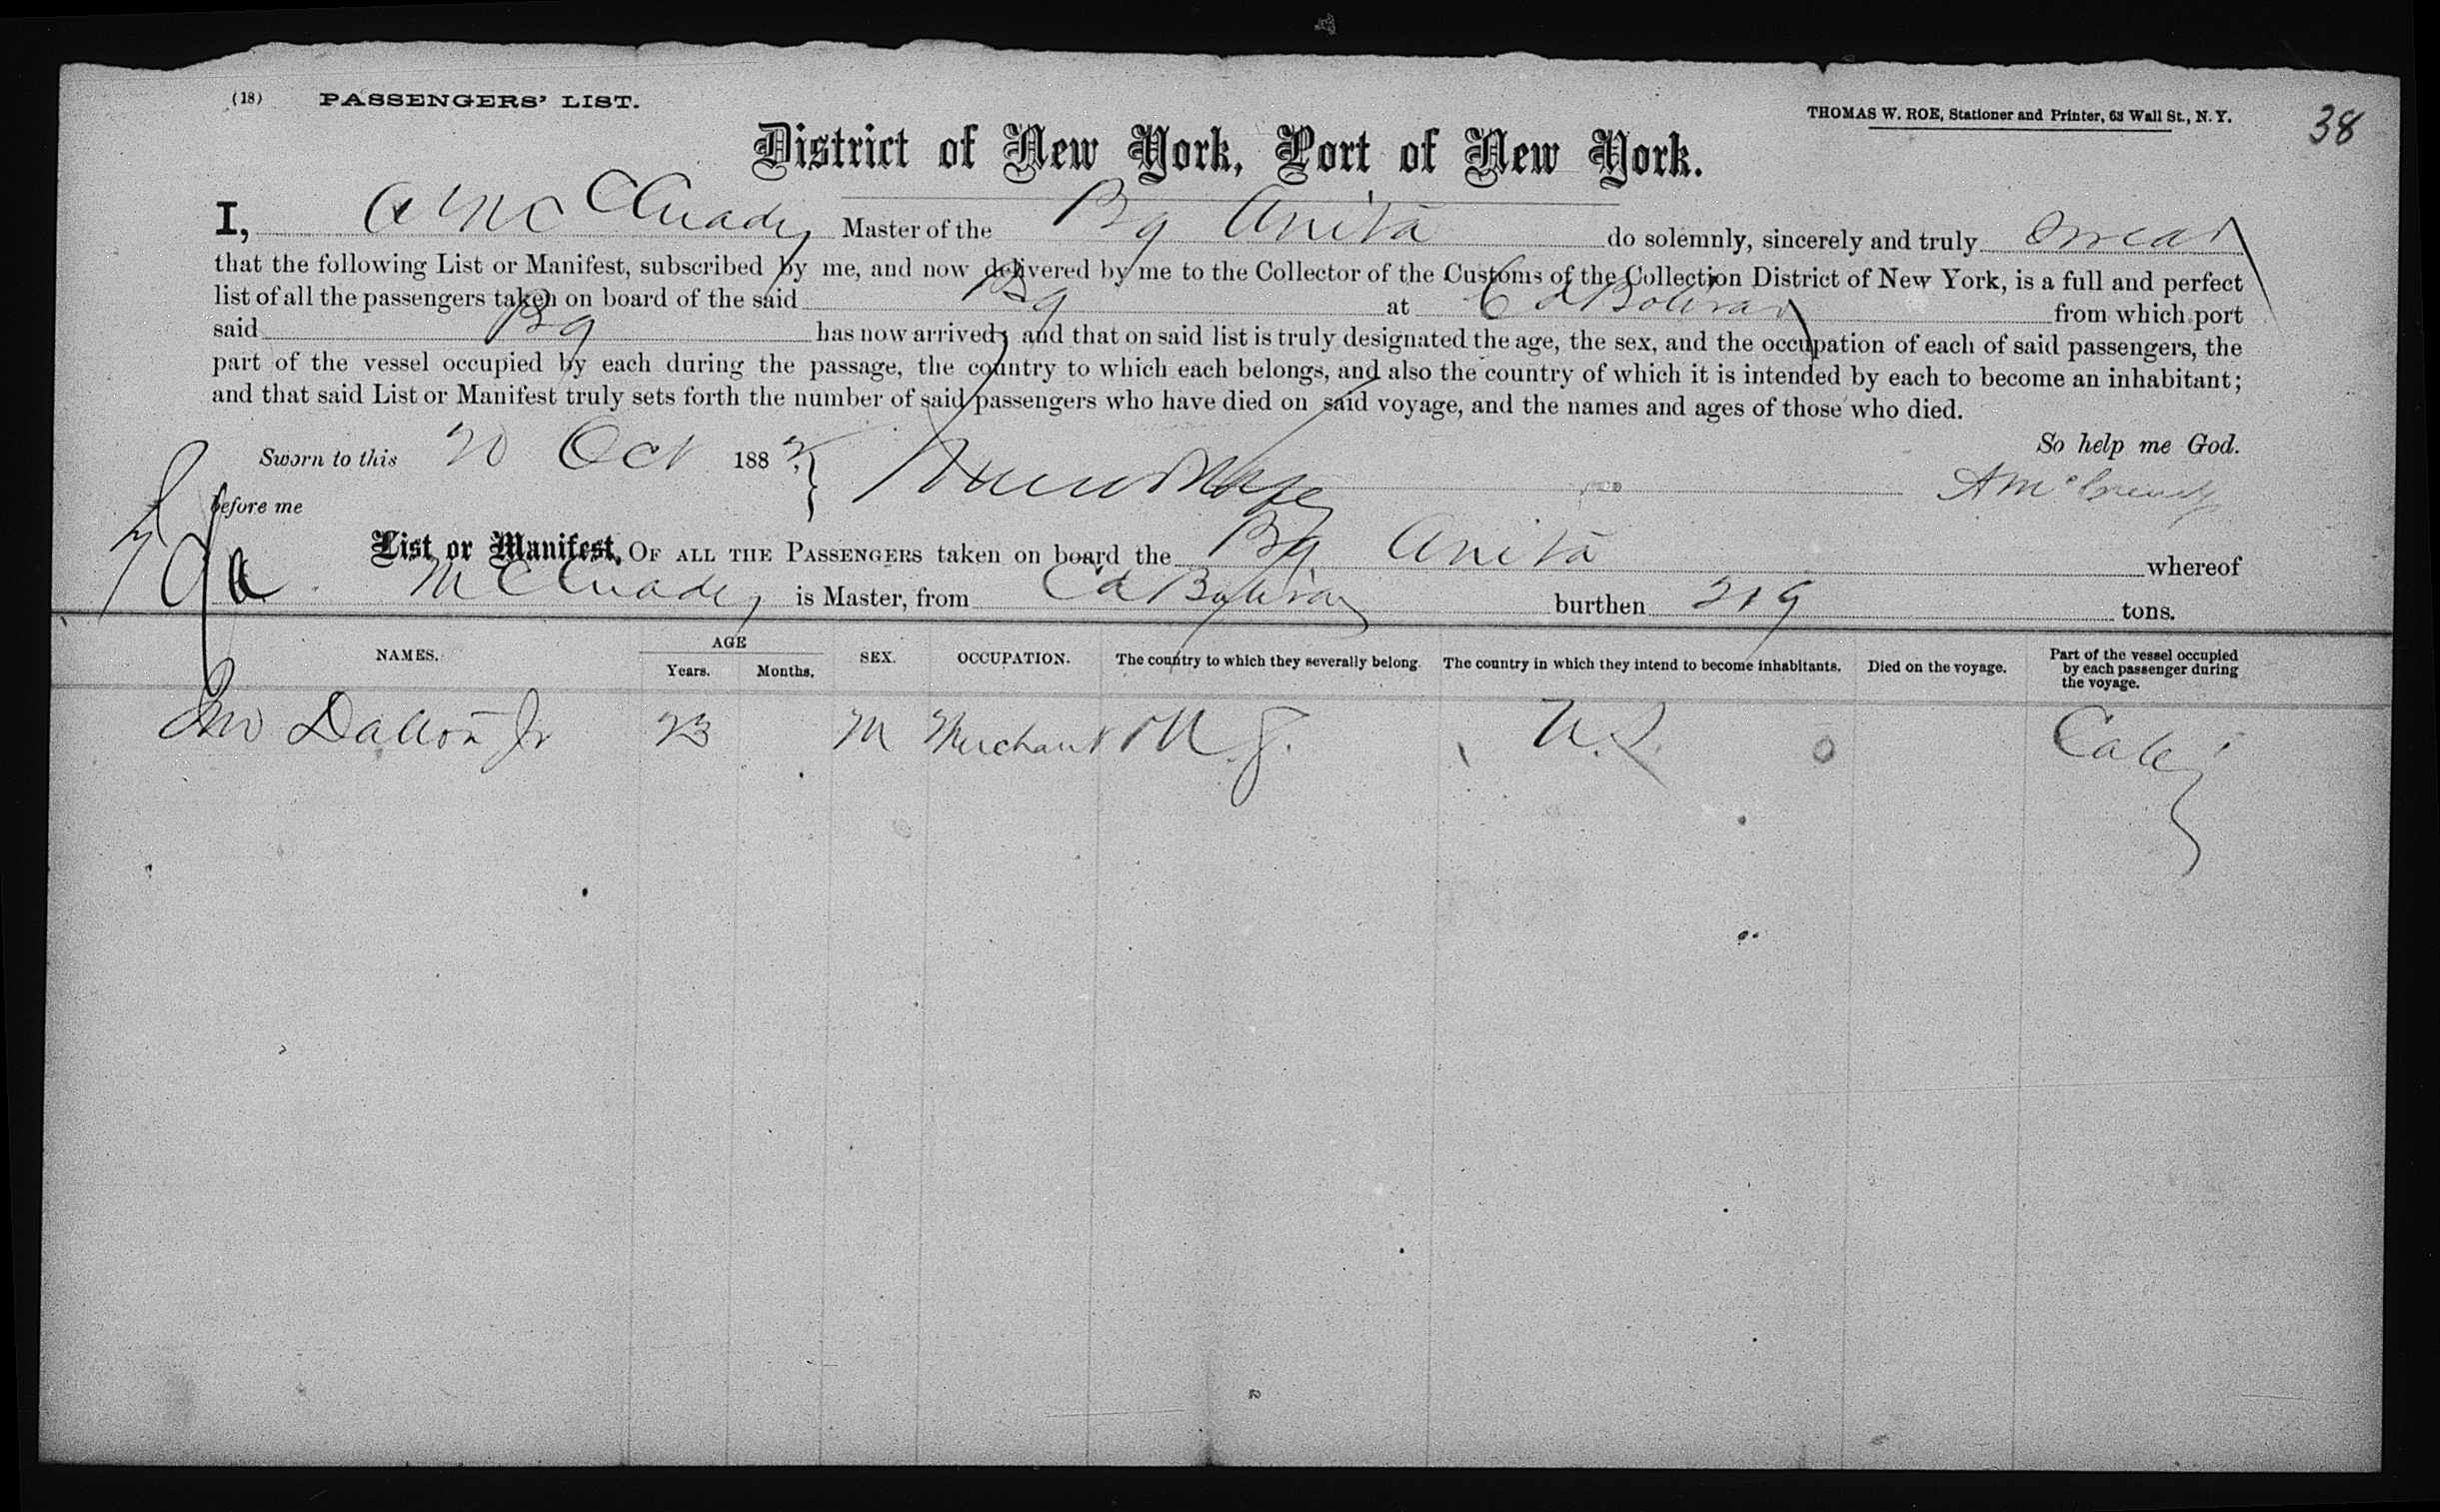 (18) PASSENGERS' LIST.
THOMAS W. ROE, Stationer and Printer, 63 Wall St., N. Y.
38
District of New York, Port of New York.
I, A Mc Master of the Bg Anita do solemnly, sincerely and truly swear
that the following List or Manifest, subscribed by me, and now delivered by me to the Collector of the Customs of the Collection District of New York, is a full and perfect
list of all the passengers taken on board of the said Bg at Cd Bolivar from which port
said Bg has now arrived; and that on said list is truly designated the age, the sex, and the occupation of each of said passengers, the
part of the vessel occupied by each during the passage, the country to which each belongs, and also the country of which it is intended by each to become an inhabitant;
and that said List or Manifest truly sets forth the number of said passengers who have died on said voyage, and the names and ages of those who died.
So help me God.
Sworn to this 20 Oct 188
before me
List or Manifest, OF ALL THE PASSENGERS taken on board the Bg Anita whereof
is Master, from Cd Bolivar burthen 219 tons.
NAMES. AGE Years. Months. SEX. OCCUPATION. The country to which they severally belong. The country in which they intend to become inhabitants. Died on the voyage. Part of the vessel occupied by each passenger during the voyage.
Jno Dalton Jr 23 M Merchant U.S. 0